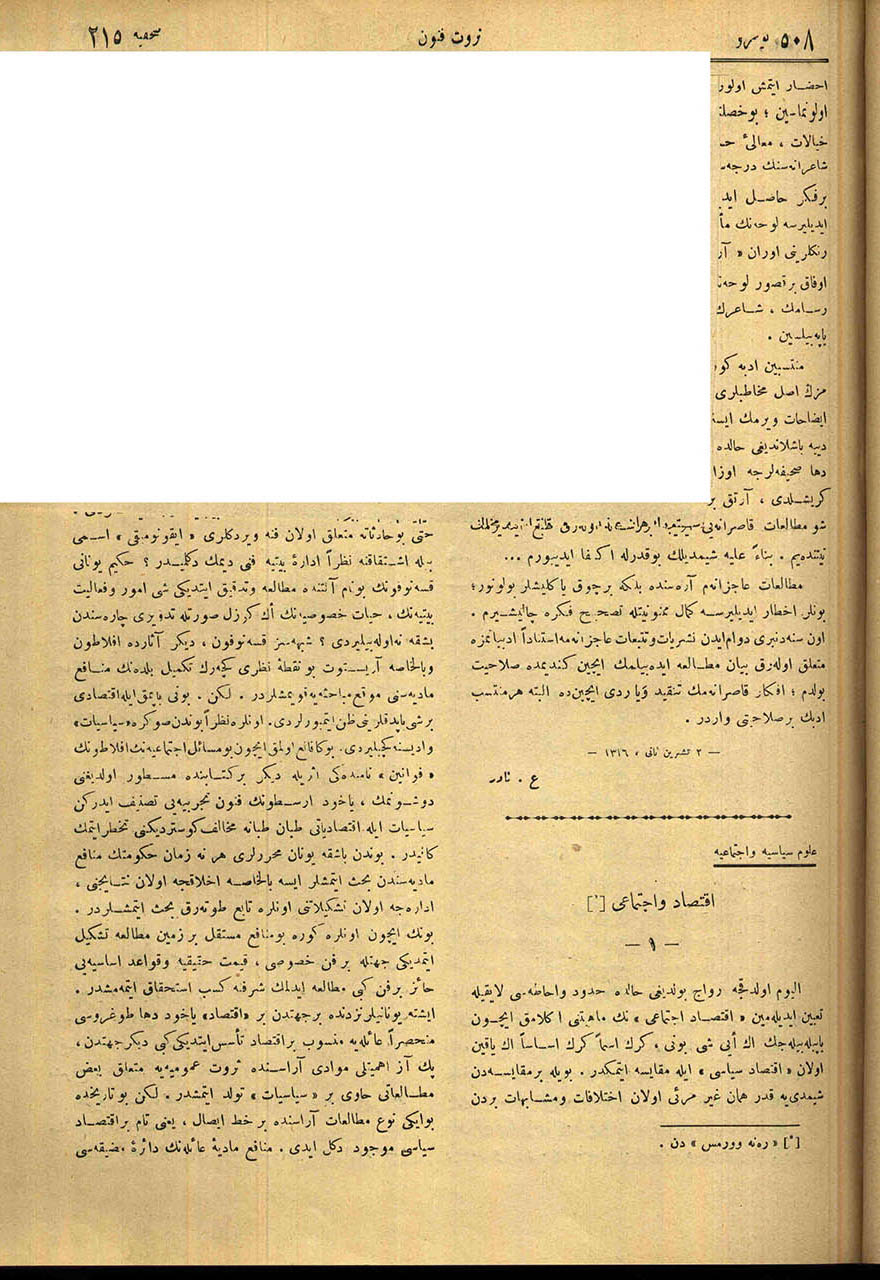 نومرو ٥٠٨
ثروت فنون
صحيفه ٢١٥
احضار ايتمش اولور
اولونماسين ؛ بوخصلت
خيالات ، معالیٔ حـ
شاعرانه‌سنك درجه‌
برفكر حاصل ايد
ايديليرسه لوحه‌نك مأ
رنكلرينى اوران « آر
اوفاق برتصور لوحه‌
رسامك ، شاعرك
ياپه‌بيلسين .
منتسبين ادبه كو
مزك اصل مخاطبلرى
ايضاحات ويرمك ايسه
ديیه باشلانديغى حالده
دها صحيفه‌لرجه اوزا
كريشلدى ، آرتق بر
شو مطالعات قاصرانه‌يى
نيتنده‌يم . بناءً عليه شيمديلك بوقدرله اكتفا ايديورم ...
مطالعات عاجزانه‌م آره‌سنده بلكه برچوق ياكليشلر بولونور؛
بونلر اخطار ايديليرسه كمال ممنونيتله تصحيح فكره چاليشيرم .
اون سنه‌دنبرى دوام ايدن نشريات و تتبعات عاجزانه‌مه استناداً ادبياتمزه
متعلق اوله‌رق بيان مطالعه ايده‌بيلمك ايچين كنديمده صلاحيت
بولدم ؛ افكار قاصرانه‌مك تنقيد و يا ردى ايچين‌ده البته هر منتسب
ادبك برصلاحيتى واردر .
— ٢ تشرين ثانى ، ١٣١٦ —
ع . نادر
علوم سياسيه و اجتماعيه
اقتصاد و اجتماعى [*]
— ١ —
اليوم اولدقجه رواج بولديغى حالده حدود و احاطه‌سى لايقيله
تعيين ايديله‌مين « اقتصاد اجتماعى » نك ماهيتنى اكلامق ايچون
ياپيله‌بيله‌جك اك أيى شى بونى ، كرك اسماً كرك اساساً اك ياقين
اولان « اقتصاد سياسى » ايله مقايسه ايتمكدر . بويله برمقايسه‌دن
شيمدى‌يه قدر همان غير مرئى اولان اختلافات و مشابهات بردن
[*] « ره‌نه وورمس » دن .
حتى بوحادثاته متعلق اولان فنه ويردكلرى « ايقونوميقى » اسمى
بيله اشتقاقنه نظراً ادارهٔ بيتيه فنى ديمك دكلميدر ؟ حكيم يونانى
قسه‌نوفونك بونام آلتنده مطالعه و تدقيق ايتديكى شى امور و فعاليت
بيتيه‌نك ، حيات خصوصيه‌نك أك كوزل صورتله تدويرى چاره‌سندن
بشقه نه اوله‌بيليردى ؟ شبهه‌سز قسه‌نوفون ، ديكر آثارده افلاطون
وبالخاصه آريستوت بو نقطهٔ نظرى كچه‌رك تكميل بلده‌نك منافع
ماديه‌سنى موقع مباحثه‌يه قويمشلردر . لكن . بونى يايمق ايله اقتصادى
برشى ياپدقلرينى ظن ايتميورلردى . اونلره نظراً بوندن صوكره « سياسيات »
واديسنه كچيليردى . بوكا قانع اولمق ايچون بومسائل اجتماعيه‌نك افلاطونك
« قوانين » نامنده‌كى اثريله ديكر بركتابنده مسطور اولديغنى
دوشونمك ، ياخود ارسطونك فنون تجربيه‌يى تصنيف ايدركن
سياسيات ايله اقتصادياتى طبان طبانه مخالف كوستردیكنى تخطر ايتمك
كافيدر . بوندن باشقه يونان محررلرى هر نه زمان حكومتك منافع
ماديه‌سندن بحث ايتمشلر ايسه بالخاصه اخلاقجه اولان نتايجنى ،
اداره‌جه اولان تشكيلاتنى اونلره تابع طوته‌رق بحث ايتمشلردر .
بونك ايچون اونلره كوره بومنافع مستقل بر زمين مطالعه تشكيل
ايتمديكى جهتله بر فن خصوصى ، قيمت حقيقيه و قواعد اساسيه‌يى
حائز برفن كبى مطالعه ايدلمك شرفنه كسب استحقاق ايتمه‌مشدر .
ايشته يونانيلر نزدنده برجهتدن بر « اقتصاد » ياخود دها طوغروسى
منحصراً عائله‌يه منسوب براقتصاد تأسس ايتديكى كبى ديكر جهتدن ،
پك آز اهميتلى موادى آراسنده ثروت عموميه‌يه متعلق بعض
مطالعاتى حاوى بر « سياسيات » تولد ايتمشدر . لكن بو تاريخده
بوايكى نوع مطالعات آراسنده بر خط ايصال ، يعنى تام براقتصاد
سياسى موجود دكل ايدى . منافع ماديهٔ عائله‌نك دائرهٔ مضيقه‌سى